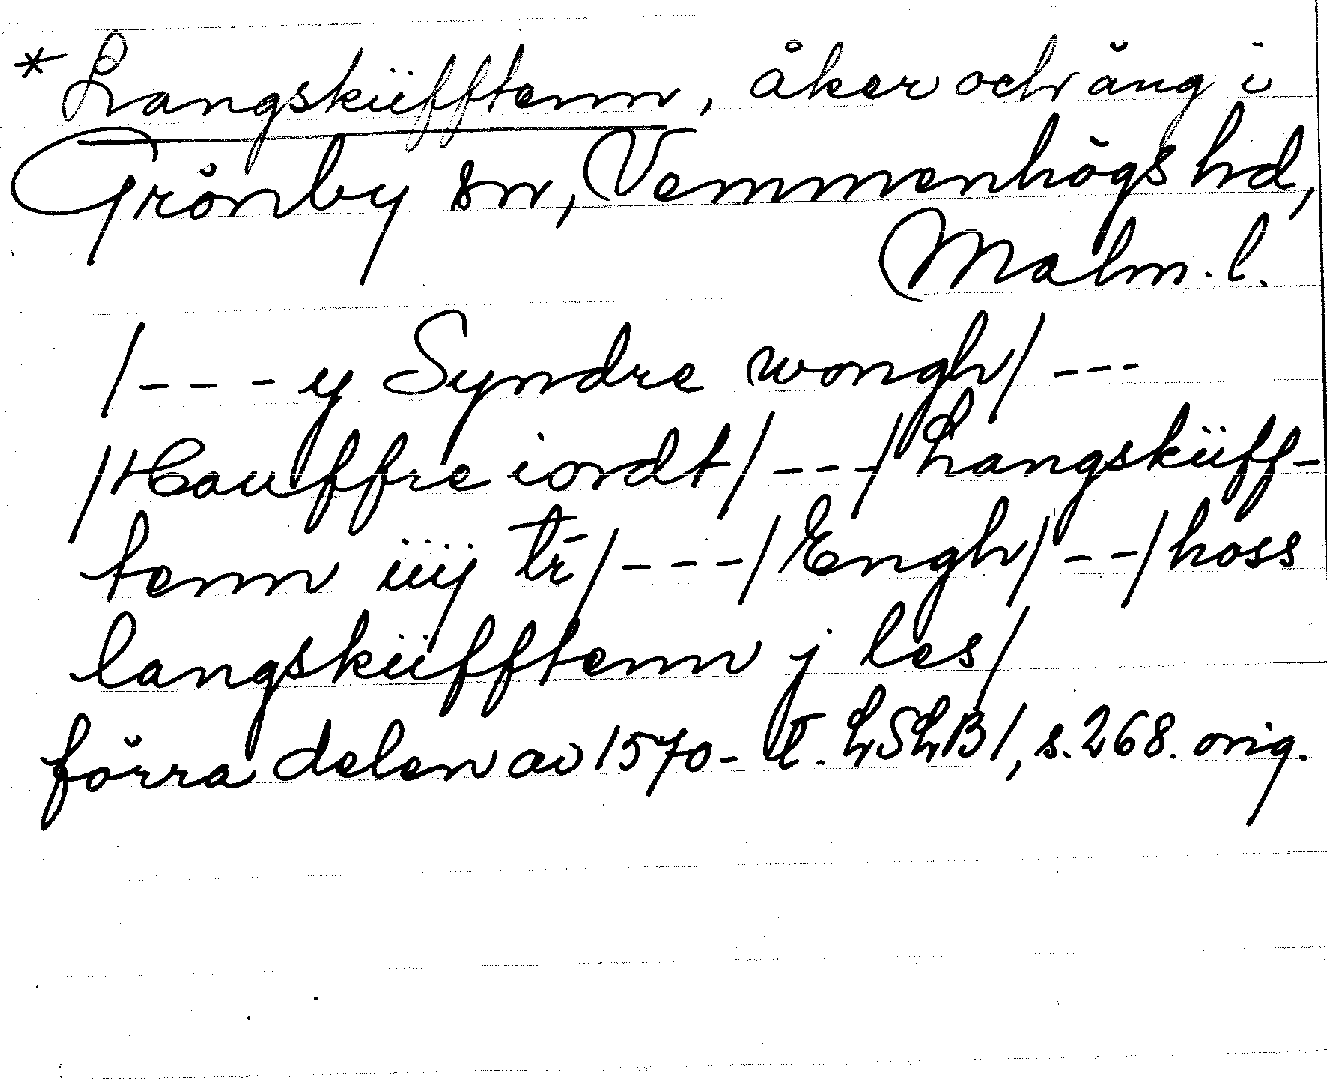 * Langsküfftenn, åker och äng i
Grönby sn, Vemmenhögs hd,
Malm. l.
/--- y Syndre wongh/ ---
/Hauffre iordt/ ---/ Langsküff-
tenn iiij tr̄/ ---/ Engh/ --/ hoss
langsküfftenn j les/
förra delen av 1570-t. LSLB 1, s. 268. orig.